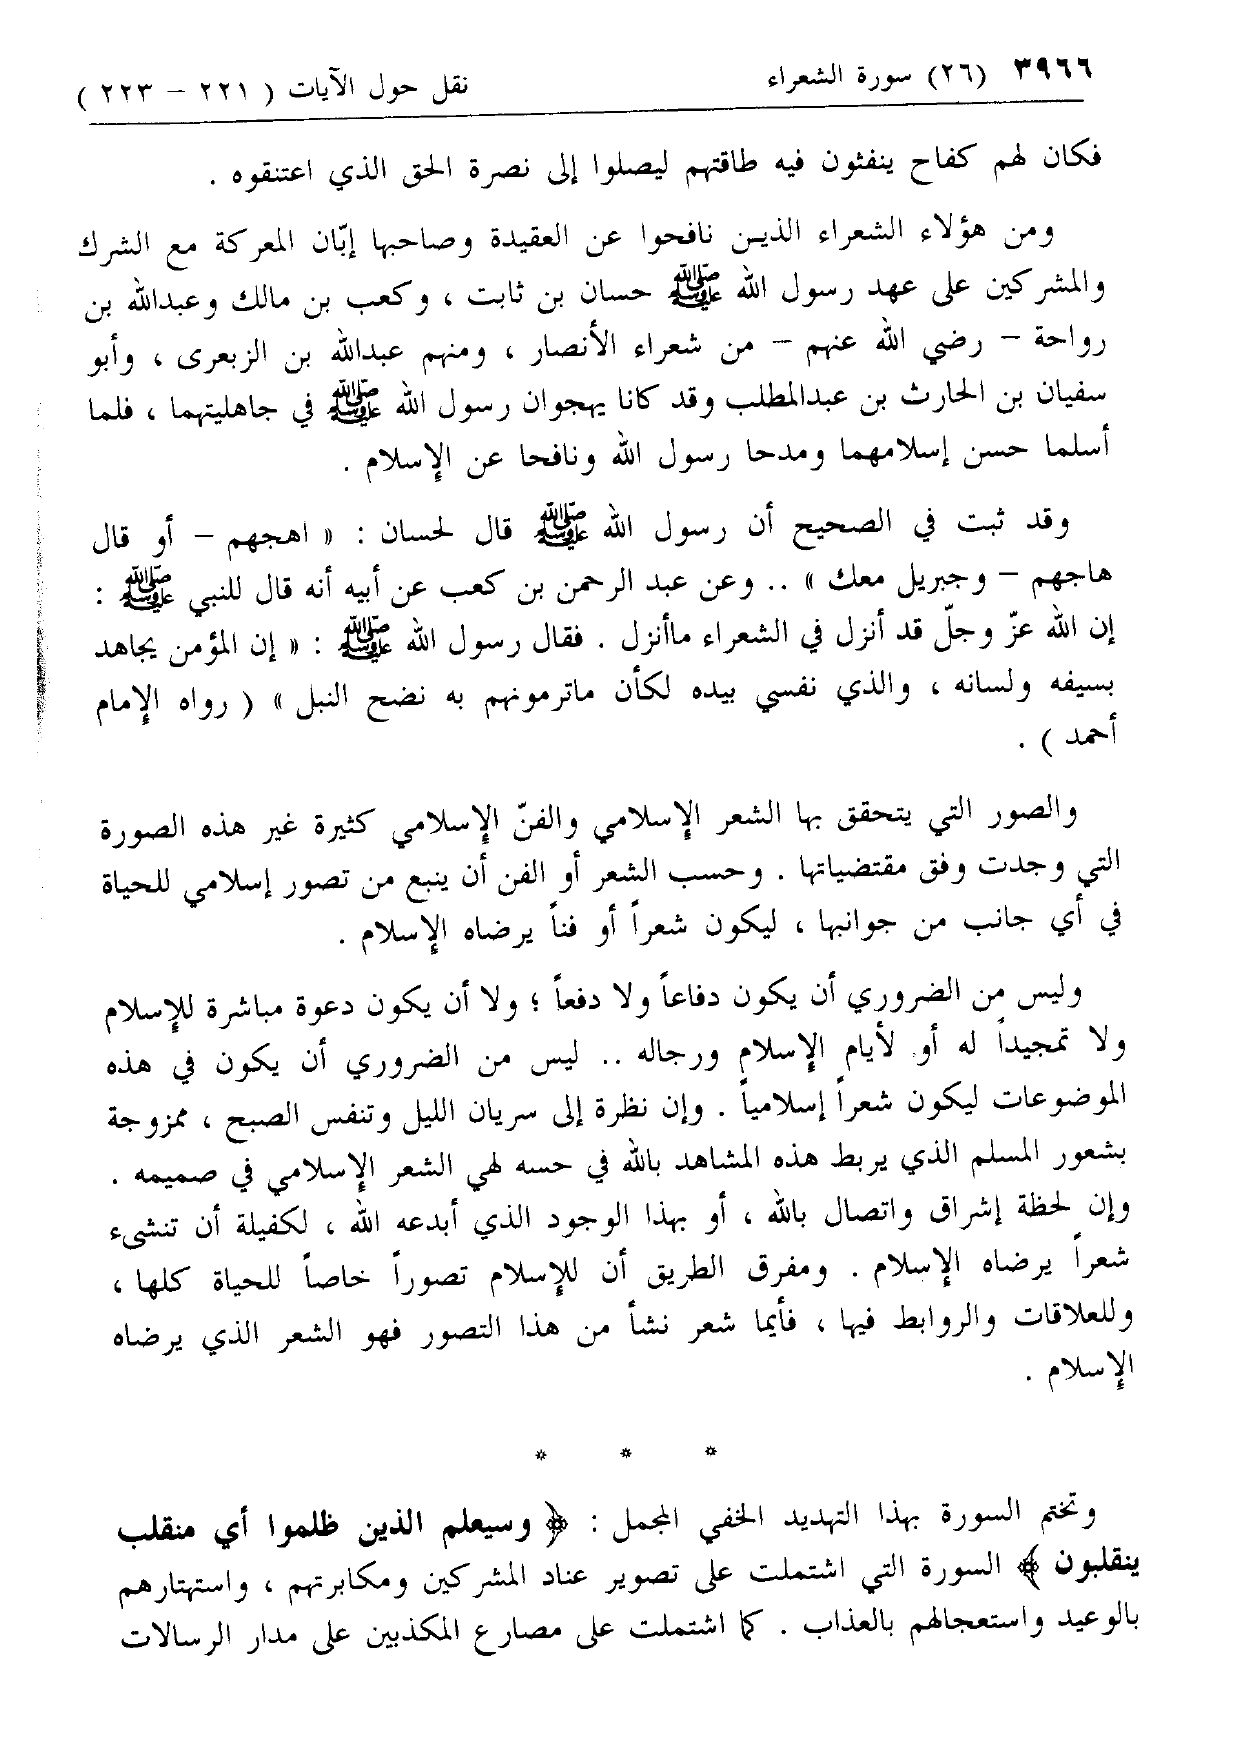 ٣٩٦٦ (٢٦) سورة الشعراء نقل حول الآيات ( ٢٢١ – ٢٢٣ )
فكان لهم كفاح ينفثون فيه طاقتهم ليصلوا إلى نصرة الحق الذي اعتنقوه .
ومن هؤلاء الشعراء الذين نافحوا عن العقيدة وصاحبها إبّان المعركة مع الشرك
والمشركين على عهد رسول الله ﷺ حسان بن ثابت ، وكعب بن مالك وعبدالله بن
رواحة – رضي الله عنهم – من شعراء الأنصار ، ومنهم عبدالله بن الزبعرى ، وأبو
سفيان بن الحارث بن عبدالمطلب وقد كانا يهجوان رسول الله ﷺ في جاهليتهما ، فلما
أسلما حسن إسلامهما ومدحا رسول الله ونافحا عن الإسلام .
وقد ثبت في الصحيح أن رسول الله ﷺ قال لحسان : « اهجهم – أو قال
هاجهم – وجبريل معك » .. وعن عبد الرحمن بن كعب عن أبيه أنه قال للنبي ﷺ :
إن الله عزّ وجلّ قد أنزل في الشعراء ماأنزل . فقال رسول الله ﷺ : « إن المؤمن يجاهد
بسيفه ولسانه ، والذي نفسي بيده لكأن ماترمونهم به نضح النبل » ( رواه الإمام
أحمد ) .
والصور التي يتحقق بها الشعر الإسلامي والفنّ الإسلامي كثيرة غير هذه الصورة
التي وجدت وفق مقتضياتها . وحسب الشعر أو الفن أن ينبع من تصور إسلامي للحياة
في أي جانب من جوانبها ، ليكون شعراً أو فناً يرضاه الإسلام .
وليس من الضروري أن يكون دفاعاً ولا دفعاً ؛ ولا أن يكون دعوة مباشرة للإسلام
ولا تمجيداً له أو لأيام الإسلام ورجاله .. ليس من الضروري أن يكون في هذه
الموضوعات ليكون شعراً إسلامياً . وإن نظرة إلى سريان الليل وتنفس الصبح ، ممزوجة
بشعور المسلم الذي يربط هذه المشاهد بالله في حسه لهي الشعر الإسلامي في صميمه .
وإن لحظة إشراق واتصال بالله ، أو بهذا الوجود الذي أبدعه الله ، لكفيلة أن تنشىء
شعراً يرضاه الإسلام . ومفرق الطريق أن للإسلام تصوراً خاصاً للحياة كلها ،
وللعلاقات والروابط فيها ، فأيما شعر نشأ من هذا التصور فهو الشعر الذي يرضاه
الإسلام .
* * *
وتختم السورة بهذا التهديد الخفي المجمل : ﴿ وسيعلم الذين ظلموا أي منقلب
ينقلبون ﴾ السورة التي اشتملت على تصوير عناد المشركين ومكابرتهم ، واستهتارهم
بالوعيد واستعجالهم بالعذاب . كما اشتملت على مصارع المكذبين على مدار الرسالات